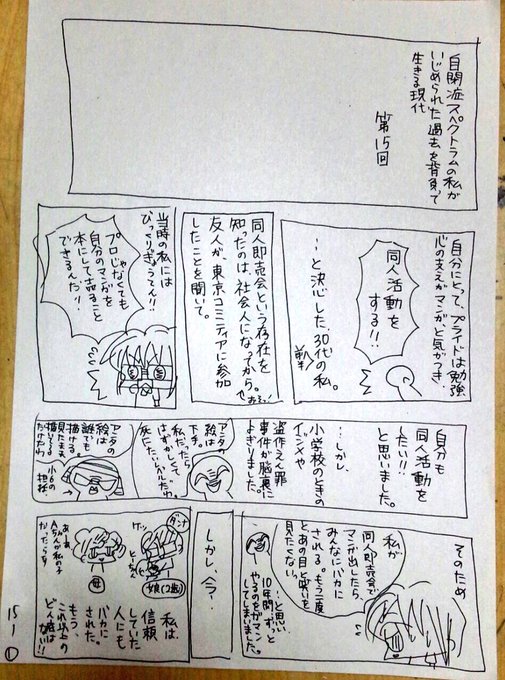 自閉症スペクトラムの私が
いじめられた過去を背負って
生きる現代
第15回
自分にとって、プライドは勉強
心の支えがマンガ、と気がつき、
同人活動を
する!!
…と決心した、30代の私。
同人即売会という存在を
知ったのは、社会人になってから。
友人が、東京コミティアに参加
したことを聞いて。
当時の私には
びっくりぎょうてん!!
プロじゃなくても
自分のマンガを
本にして売ること
できるんだ!!
自分も
同人活動を
したい!!
と思いました。
…しかし、
小学校のときの
イジメや
盗作えん罪
事件が脳裏に
よぎりました。
アンタの
絵は
下手。
私だったら
はずかしくて、
死にたいくらいだわ。
アンタの
絵は
誰でも
描ける。
見たまま
描いてる
だけだわ
小6の
担任
そのため
私が
同人即売会で
マンガ出したら、
みんなにバカに
される。もう二度
とあの目と笑いを
見たくない。
と思い、
10年間、ずっと
やるのをガマン
してしまいました。
しかし、今…
私は
信頼
していた
人にも
バカに
された。
もう、
これ以上の
どん底はない!!
娘(2歳)
母
あーあ
Aちゃんが私の子
だったらな
15-1